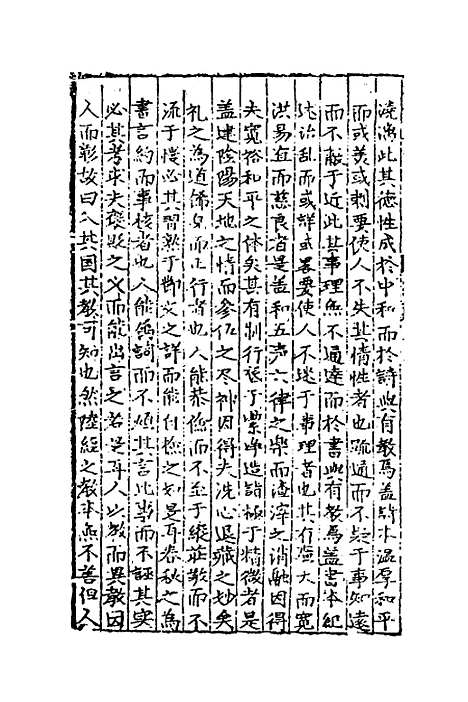 澆漓此其德性成於中和而於詩豈有教焉蓋詩本温厚和平
而或美或刺要使人不失其情性者也疏通而不疑于事知遠
而不蔽于近此其事理無不通達而於書豈有教焉蓋書本紀
政治乱而或詳或畧要使人不迷于事理者也其有寬大而寬
洪易直而慈良者是蓋和五声六律之樂而渣滓之消融因得
夫寬裕和平之体矣其有制行底于潔峰造詣極于精微者是
蓋建陰陽天地之情而參伍之尽神因得夫洗心退藏之妙矣
礼之為道偹臭而正行者也人能恭儉而不至于縱莊敬而不
流于慢必其習熟于斯文之詳而能付檢之如是耳春秋之為
書言約而事核者也人能簡詞而不煩其言比事而不誣其实
必其考乎夫褒貶之义而能出言之若是耳人以教而異教因
人而彰故曰入其国其教可知也然陸經之教本無不善但人